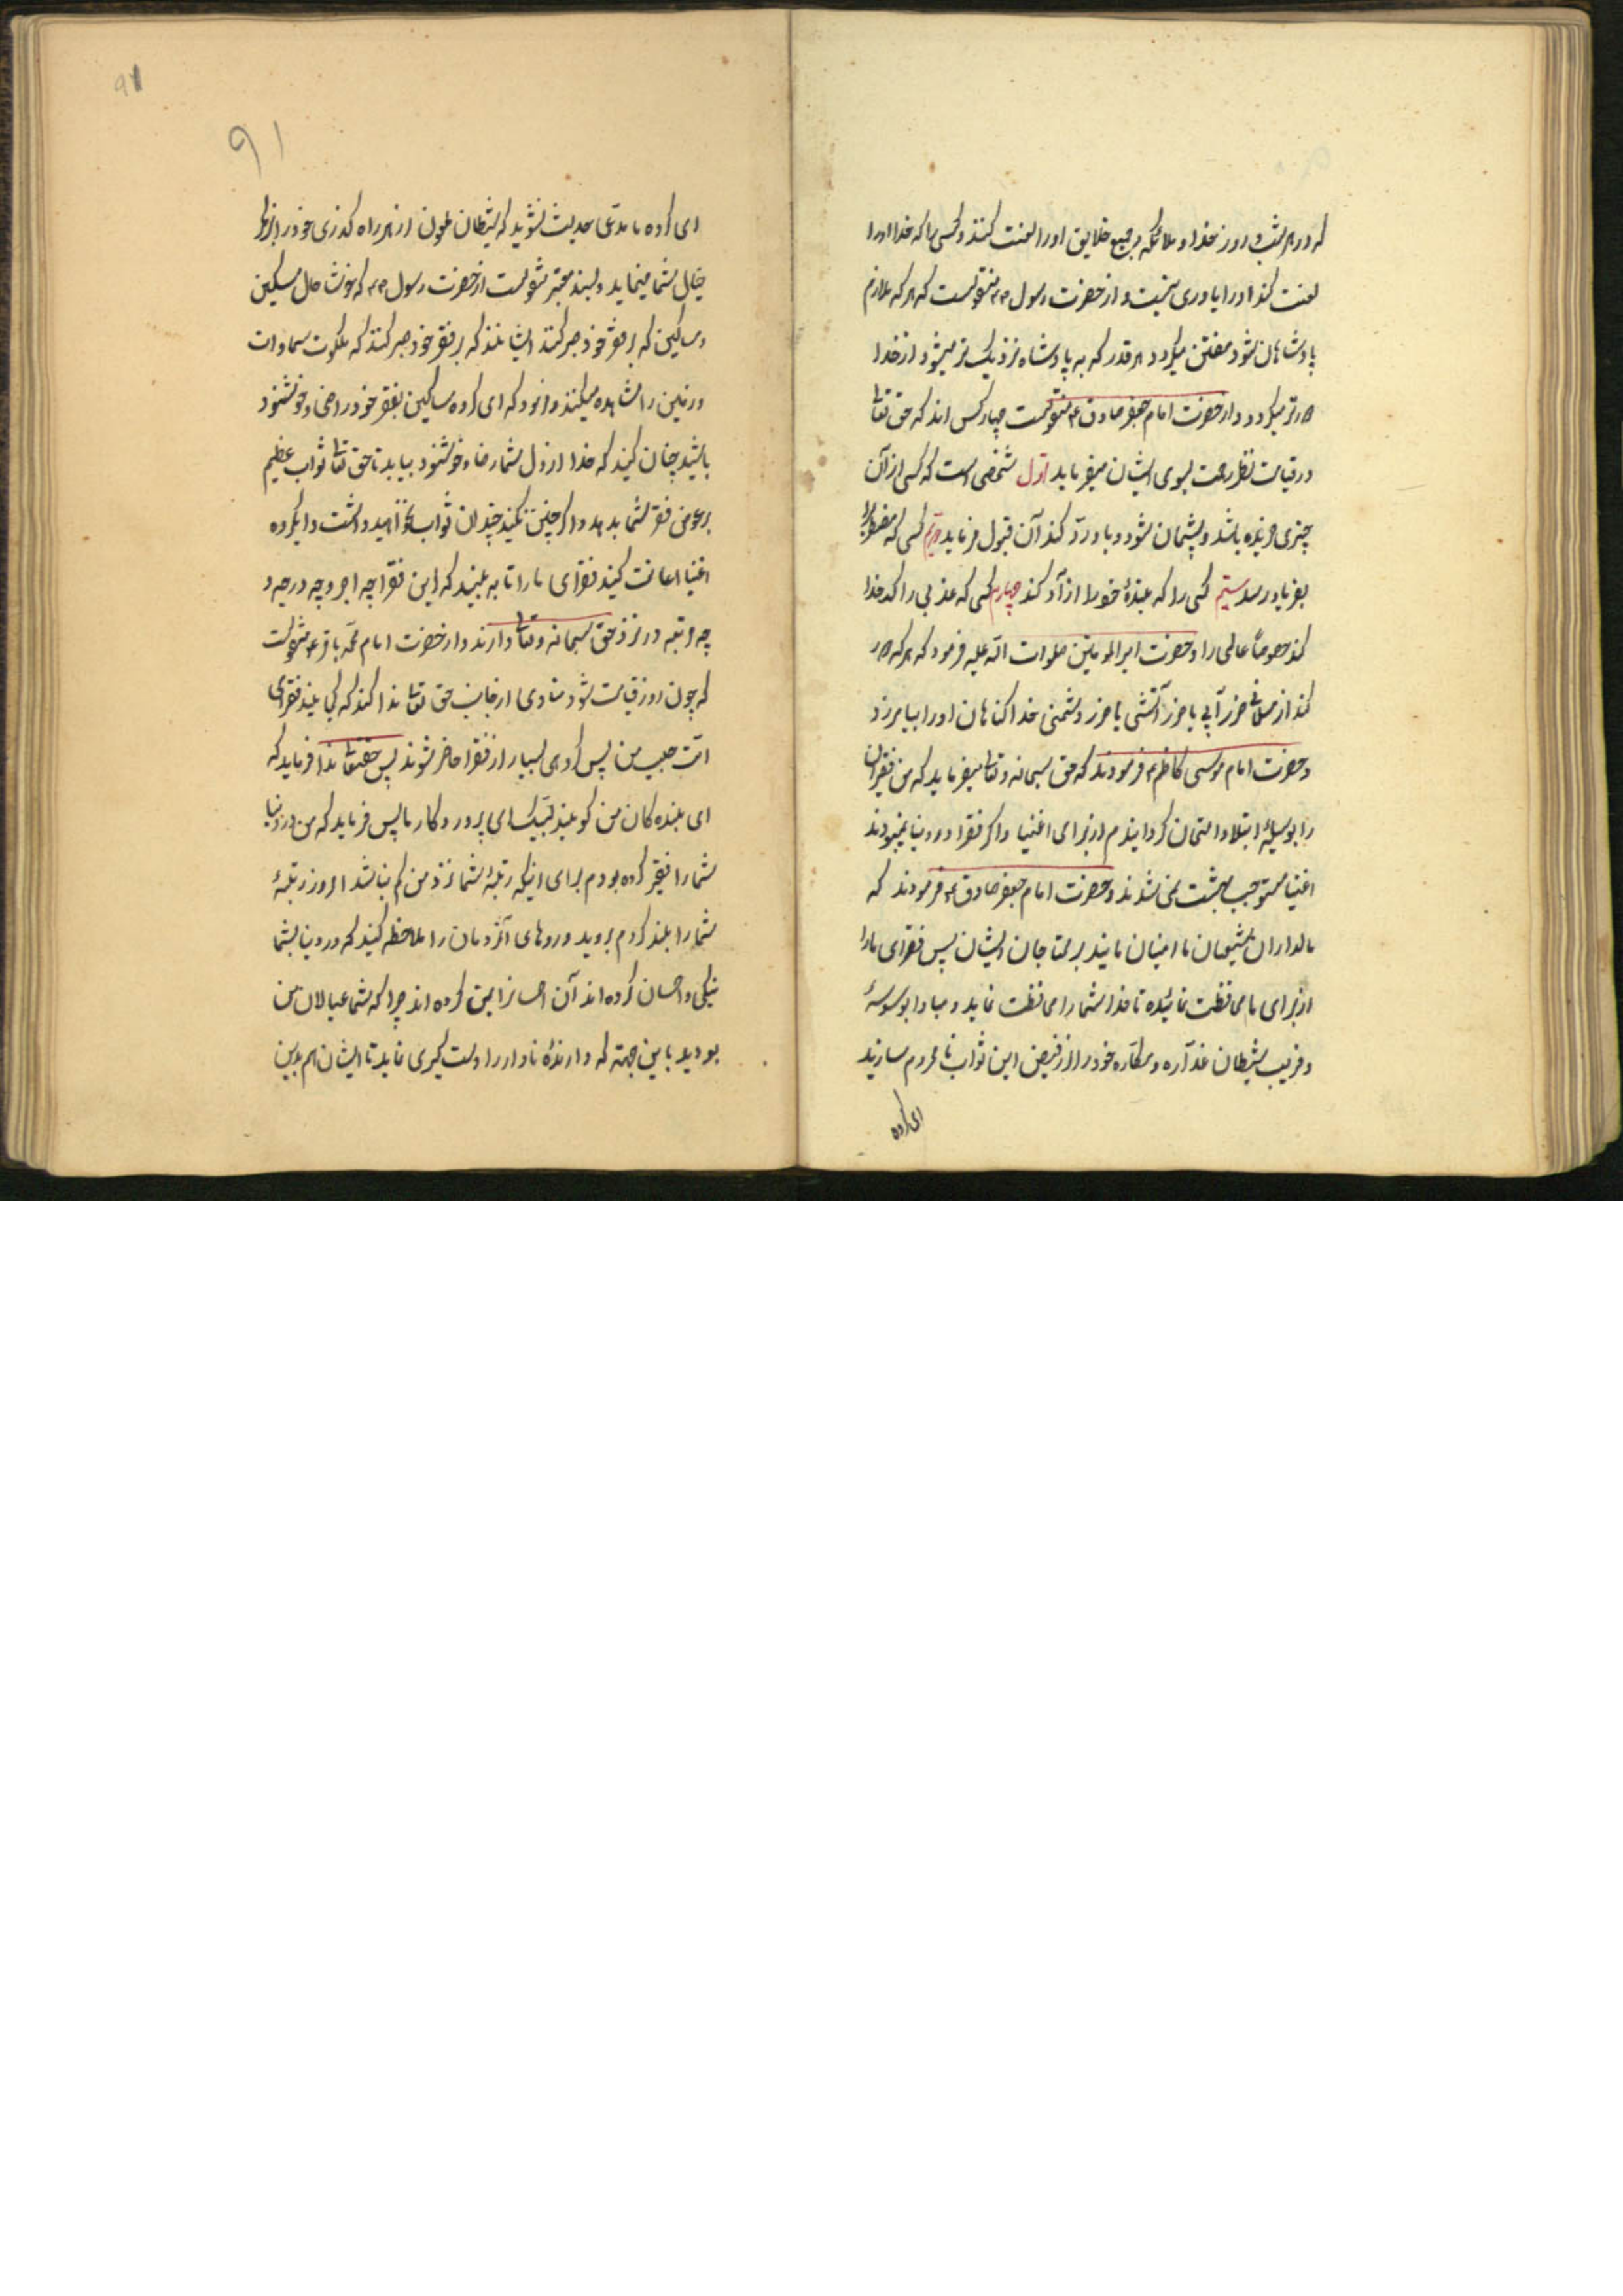 که در هر شب و روز خدا و ملائکه و جمیع خلایق او را لعنت کنند و کسی را که خدا او را
لعنت کند او را یاوری نیست و از حضرت رسول ص منقولست که هر که ملازم
پادشاهان شود مفتتن میکردد هر قدر که به پادشاه نزدیک تر میشود از خدا
دورتر میکردد و از حضرت امام جعفر صادق ع منقولست چهار کس اند که حق تعالی
در قیامت نظر رحمت بسوی ایشان میفرماید اول شخصی است که کسی از آن
چیزی خریده باشد و پشیمان شود و باو رد کند آن قبول فرماید دویم کسی که مضطریرا
بفریاد رسد سیم کسی را که بندهٔ خود را آزاد کند چهارم کسی که عذبی را کدخدا
کند خصوصاً عالمی را و حضرت امیرالمومنین صلوات الله علیه فرمود که هر که دور
کند از مسلمانی ضرر آبی یا ضرر آتشی یا ضرر دشمنی خدا کناهان او را بیامرزد
و حضرت امام موسی کاظم ع فرمودند که حق سبحانه و تعالی میفرماید که من فقیران
را بوسیلهٔ ابتلا و امتحان کردانیدم از برای اغنیا و اکر فقرا در دنیا نمیبودند
اغنیا مستوجب بهشت نمی شدند و حضرت امام جعفر صادق ع فرمودند که
مالداران شیعیان ما امینان مایند بر محتاجان ایشان پس فقرای ما را
از برای ما محافظت نمائیده تا خدا شما را محافظت نماید و مبادا بوسوسهٔ
و فریب شیطان غدّاره و مکّاره خود را از فیض این ثواب نامحروم سازید
ای کروه
۹۱
۹۱
ای کروه شیطان ملعون از هر راه کذری خود را
خیال شما مینماید و بسند معتبر منقولست از حضرت رسول ص که خوشا حال مسکین
و مساکین که بر فقر خود صبر کنند ایشانند که بر فقر خود صبر کنند که ملکوت سماوات
و زمین را مشاهده میکنند و فرمود که ای کروه مساکین بفقر خود راضی و خوشنود
باشید چنان کنید که خدا از دل شما رضا و خوشنود بیابد تا حق تعالی ثواب عظیم
بر عوض فقر شما بدهد و اکر چنین نکنید چندان ثواب نخواهید داشت و ای کروه
اغنیا اعانت کنید فقرای ما را تا به بینید که این فقرا چه اجر و چه درجه و
چه مرتبه در نزد حق سبحانه و تعالی دارند و از حضرت امام محمّد باقر ع منقولست
که چون روز قیامت شود منادی از جانب حق تعالی ندا کند که کی یند فقرای
امّت حبیب من پس کروهی بسیار از فقرا حاضر شوند پس حقتعالی ندا فرماید که
ای بنده کان من کویند لبّیک ای پروردکار ما پس فرماید که من در دنیا
شما را فقیر کرده بودم برای اینکه رتبهٔ شما نزد من کم نباشد امروز رتبهٔ
شما را بلند کردم بروید و روهای آنمردمان را ملاحظه کنید که در دنیا بشما
نیکی و احسان کرده اند آن احسانرا بمن کرده اند چرا که شما عیالان من
بودید باین جهته که دارندهٔ نادار را دست کیری نماید تا ایشان هم بدین